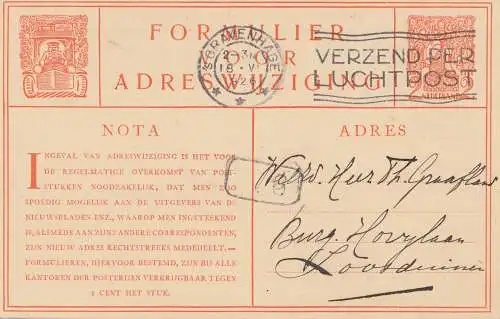 FORMULIER
VOOR
ADRESWIJZIGING
'S-GRAVENHAGE
18.VI
1926
VERZEND PER
LUCHTPOST
NEDERLAND
NOTA
INGEVAL VAN ADRESWIJZIGING IS HET VOOR
DE REGELMATIGE OVERKOMST VAN POST-
STUKKEN NOODZAKELIJK, DAT MEN ZOO
SPOEDIG MOGELIJK AAN DE UITGEVERS VAN DE
NIEUWSBLADEN ENZ., WAAROP MEN INGETEEKEND
IS, ALSMEDE AAN ZIJNE ANDERE CORRESPONDENTEN,
ZIJN NIEUW ADRES RECHTSTREEKS MEDEDEELT.—
FORMULIEREN, HIERVOOR BESTEMD, ZIJN BIJ ALLE
KANTOREN DER POSTERIJEN VERKRIJGBAAR TEGEN
1 CENT HET STUK.
ADRES
Weled. Heer Th. Graafland
Burg. Hovylaan
Loosduinen